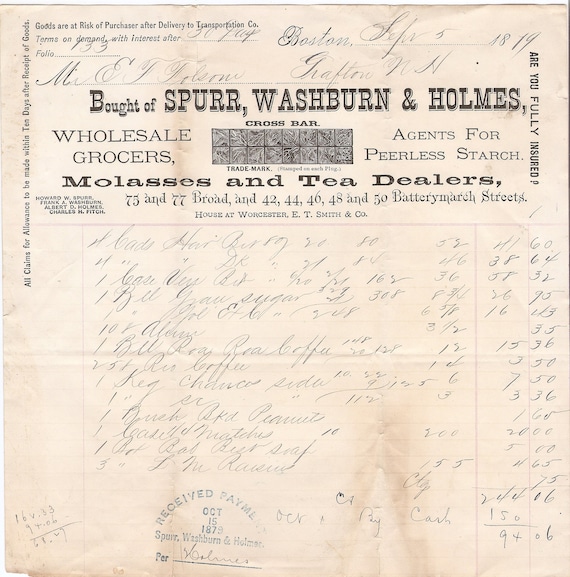 Goods are at Risk of Purchaser after Delivery to Transportation Co.
Terms on demand, with interest after 30 days
Folio 133
Boston, Sept 5 1879
Mr E T Folsom Grafton N H
Bought of SPURR, WASHBURN & HOLMES,
CROSS BAR.
WHOLESALE GROCERS,
TRADE-MARK. (Stamped on each Plug.)
AGENTS FOR PEERLESS STARCH.
Molasses and Tea Dealers,
HOWARD W. SPURR,
FRANK A. WASHBURN,
ALBERT D. HOLMES,
CHARLES H. FITCH.
75 and 77 Broad, and 42, 44, 46, 48 and 50 Batterymarch Streets.
HOUSE AT WORCESTER, E. T. SMITH & CO.
All Claims for Allowance to be made within Ten Days after Receipt of Goods.
ARE YOU FULLY INSURED?
4 Cads 20 80 52 41 60
4 " 21 84 46 38 64
1 Case 162 36 58 32
1 Bbl Sugar 308 8 3/4 26 95
1 " 248 6 5/8 16 43
10 # Alum 3 1/2 35
1 Bbl Roa Coffee 148 20 128 12 15 36
25 # Rio Coffee 14 3 50
1 Keg soda 125 6 7 50
1 " 112 3 3 36
1 Bush Bkd Peanuts 1 65
1 Case Matches 10 200 20 00
1 Box Bab Best Soap 5 00
3 " L M Raisins 155 4 65
Ctg 75
244 06
Cr
Oct By Cash 150
94 06
RECEIVED PAYMENT
OCT
15
1879
Spurr, Washburn & Holmes.
Per Holmes
94.06